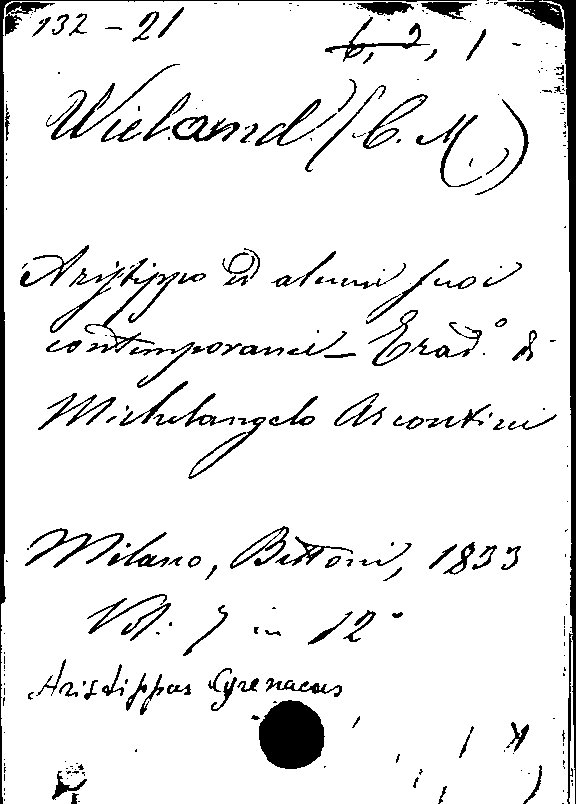 132 - 21
6, 2, 1 -
Wieland (C. M.)
Aristippo ed alcuni suoi
contemporanei - Trad.° di
Michelangelo Arcontini
Milano, Bettoni, 1833
Vol: 7 in 12°
Aristippus Cyrenaeus